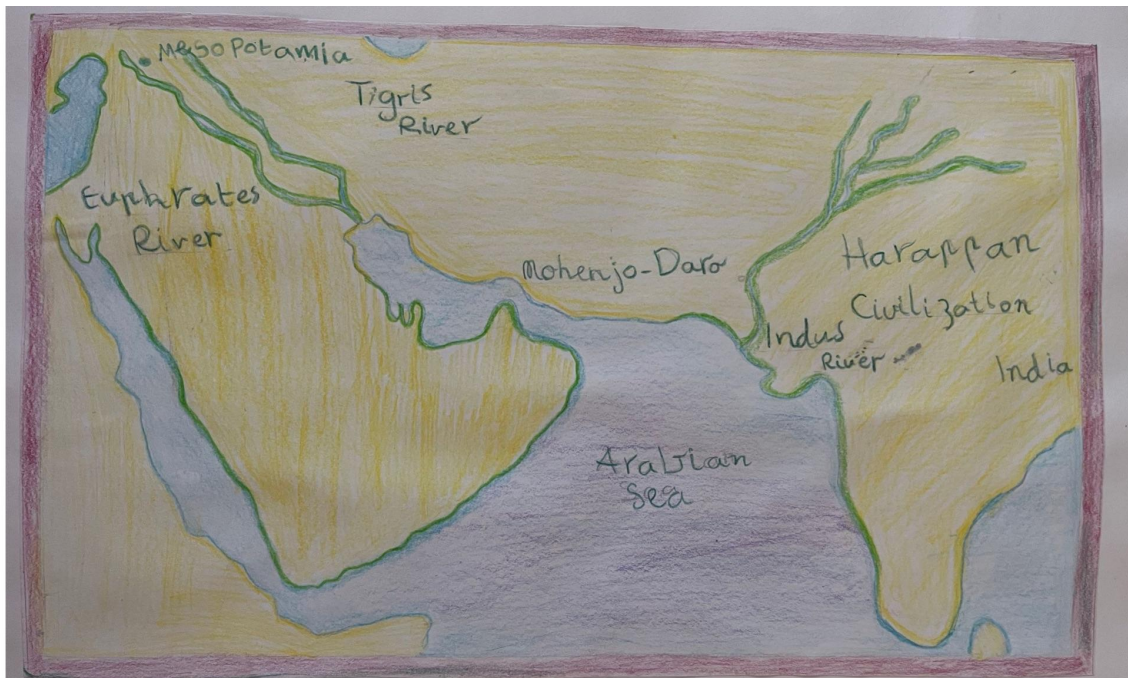 Mesopotamia
Tigris
River
Euphrates
River
Mohenjo-Daro
Harappan
Civilization
Indus
River
India
Arabian
Sea